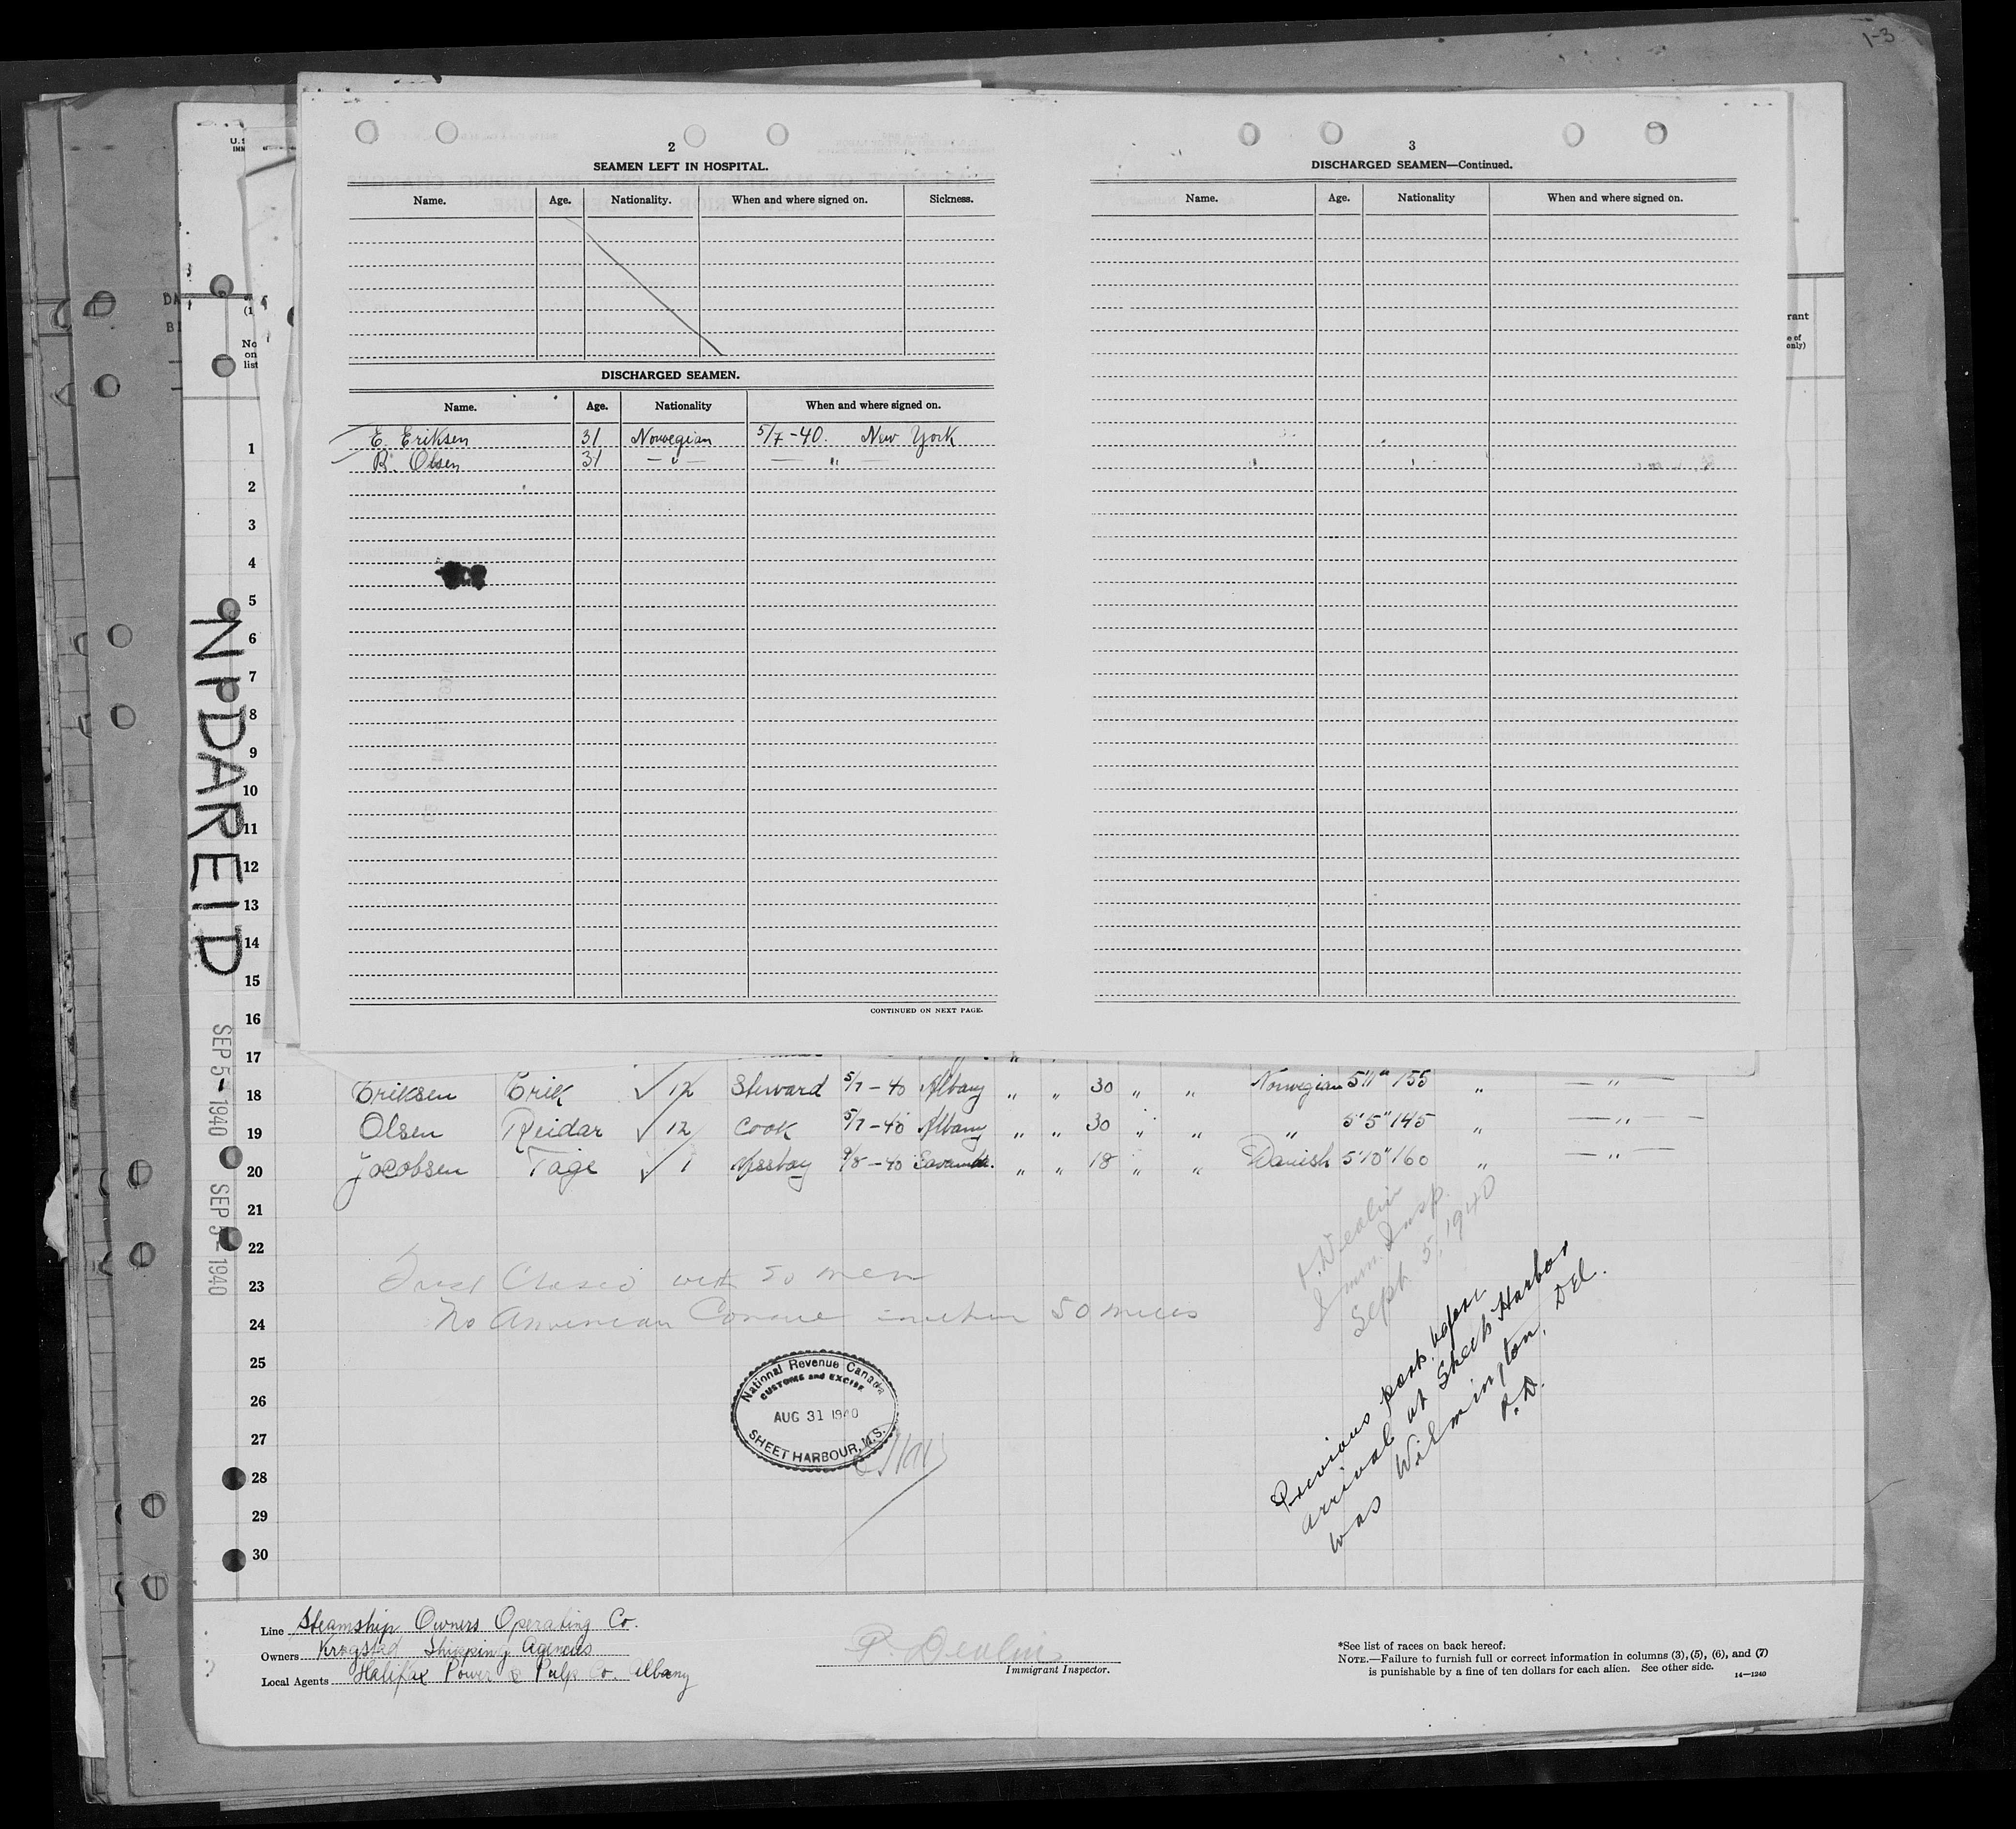 1-3
2
SEAMEN LEFT IN HOSPITAL.
Name. Age. Nationality. When and where signed on. Sickness.
DISCHARGED SEAMEN.
Name. Age. Nationality When and where signed on.
E. Eriksen 31 Norwegian 5/7-40. New York
R. Olsen 31 — " — — "
CONTINUED ON NEXT PAGE.
3
DISCHARGED SEAMEN—Continued.
Name. Age. Nationality When and where signed on.
U.S
IMM
DA
BI
(1
No
on
list
rant
e of
only)
NIDAREID
SEP 5- 1940 SEP 5- 1940
1
2
3
4
5
6
7
8
9
10
11
12
13
14
15
16
17
18 Eriksen Erik ✓ 12 Steward 5/7-40 Albany " " 30 " " Norwegian 5'11" 155 " — " —
19 Olsen Reidar ✓ 12 Cook 5/7-40 Albany " " 30 " " " 5'5" 145 " — " —
20 Jacobsen Tage ✓ 1 Messboy 9/8-40 " " 18 " " Danish 5'10" 160 " — " —
21
22
23 Closed with 20 men
24 No American within 50 miles
25
26
27
28
29
30
P. Devlin
Immn. Insp.
Sept. 5, 1940
Previous port before
arrival at Sheet Harbor
was Wilmington, Del.
P.D.
National Revenue Canada
CUSTOMS and EXCISE
AUG 31 1940
SHEET HARBOUR, N.S.
Line Steamship Owners Operating Co.
Owners Krogstad Shipping Agencies
Local Agents Halifax Power & Pulp Co. Albany
P. Devlin
Immigrant Inspector.
*See list of races on back hereof.
NOTE.—Failure to furnish full or correct information in columns (3), (5), (6), and (7)
is punishable by a fine of ten dollars for each alien. See other side.
14—1240